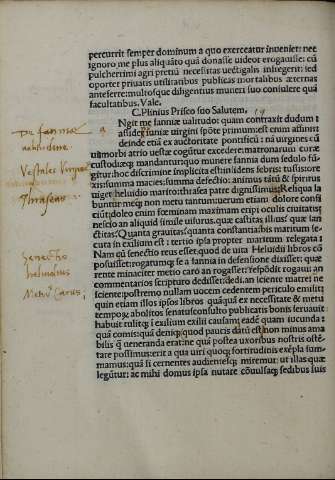 percurrit semper dominum a quo exerceatur inuenier: nec
ignoro me plus aliquāto quā donasse uideor erogauisse: cū
pulcherrimi agri pretiū necessitas uectigalis infregerit: sed
oportet priuatis utilitatibus publicas mortalibus æternas
anteferre: multosque diligentius muneri suo consulere quā
facultatibus. Vale.
C. Plinius Prisco suo Salutem.
Ngit me fanniæ ualitudo: quam contraxit dudum
assidet iuniæ uirgini spōte primum: est enim affinis
deinde etiā ex auctoritate pontificū: nā uirgines cū
ui morbi atrio uestæ cogūtur excedere: matronarum curæ
custodiæque mandantur: quo munere fannia dum sedulo fū
gitur: hoc discrimine implicita est: insidens febris: tussis increscit
summa macies: summa defectio: animus tātū & spiritus
uiget: heluidio marito: thrasea patre dignissimus: Reliqua la
buntur: meque non metu tantum: uerum etiam dolore confi
ciūt: doleo enim fœminam maximam eripi oculis ciuitatis
nescio an aliquid simile uisuris. quæ castitas illi: quæ san
ctitas: Quanta grauitas: quanta constantia: bis maritum se
cuta in exilium est: tertio ipsa propter maritum relegata:
Nam cū senecio reus esset quod de uita Heluidii libros cō
posuisset: rogatumque se a fannia in defensione dixisset: quæ
rente minaciter metio caro an rogasset: respōdit rogaui: an
commentarios scripturo dedisset: dedi. an sciente matre: ne
sciente: postremo nullam uocem cedentem periculo emisit
quin etiam illos ipsos libros quāquā ex necessitate & metu
temporum abolitos senatusconsulto publicatis bonis seruauit
habuit tulitque in exilium exilii causam: eadē quam iucunda:
quā comis: quā denique quod paucis datū est: non minus ama
bilis quā ueneranda: erat ne quā postea uxoribus nostris ostē
tare possimus: erit a qua uiri quoque fortitudinis exēpla su
mamus: quā si cernentes audientesque miremur: ut illas quæ
legūtur: ac mihi domus ipsa nutare cōuulsaque sedibus suis
De fannia
Vestales Virgines
Thraseas
Senecio
heluidius
Metius Carus